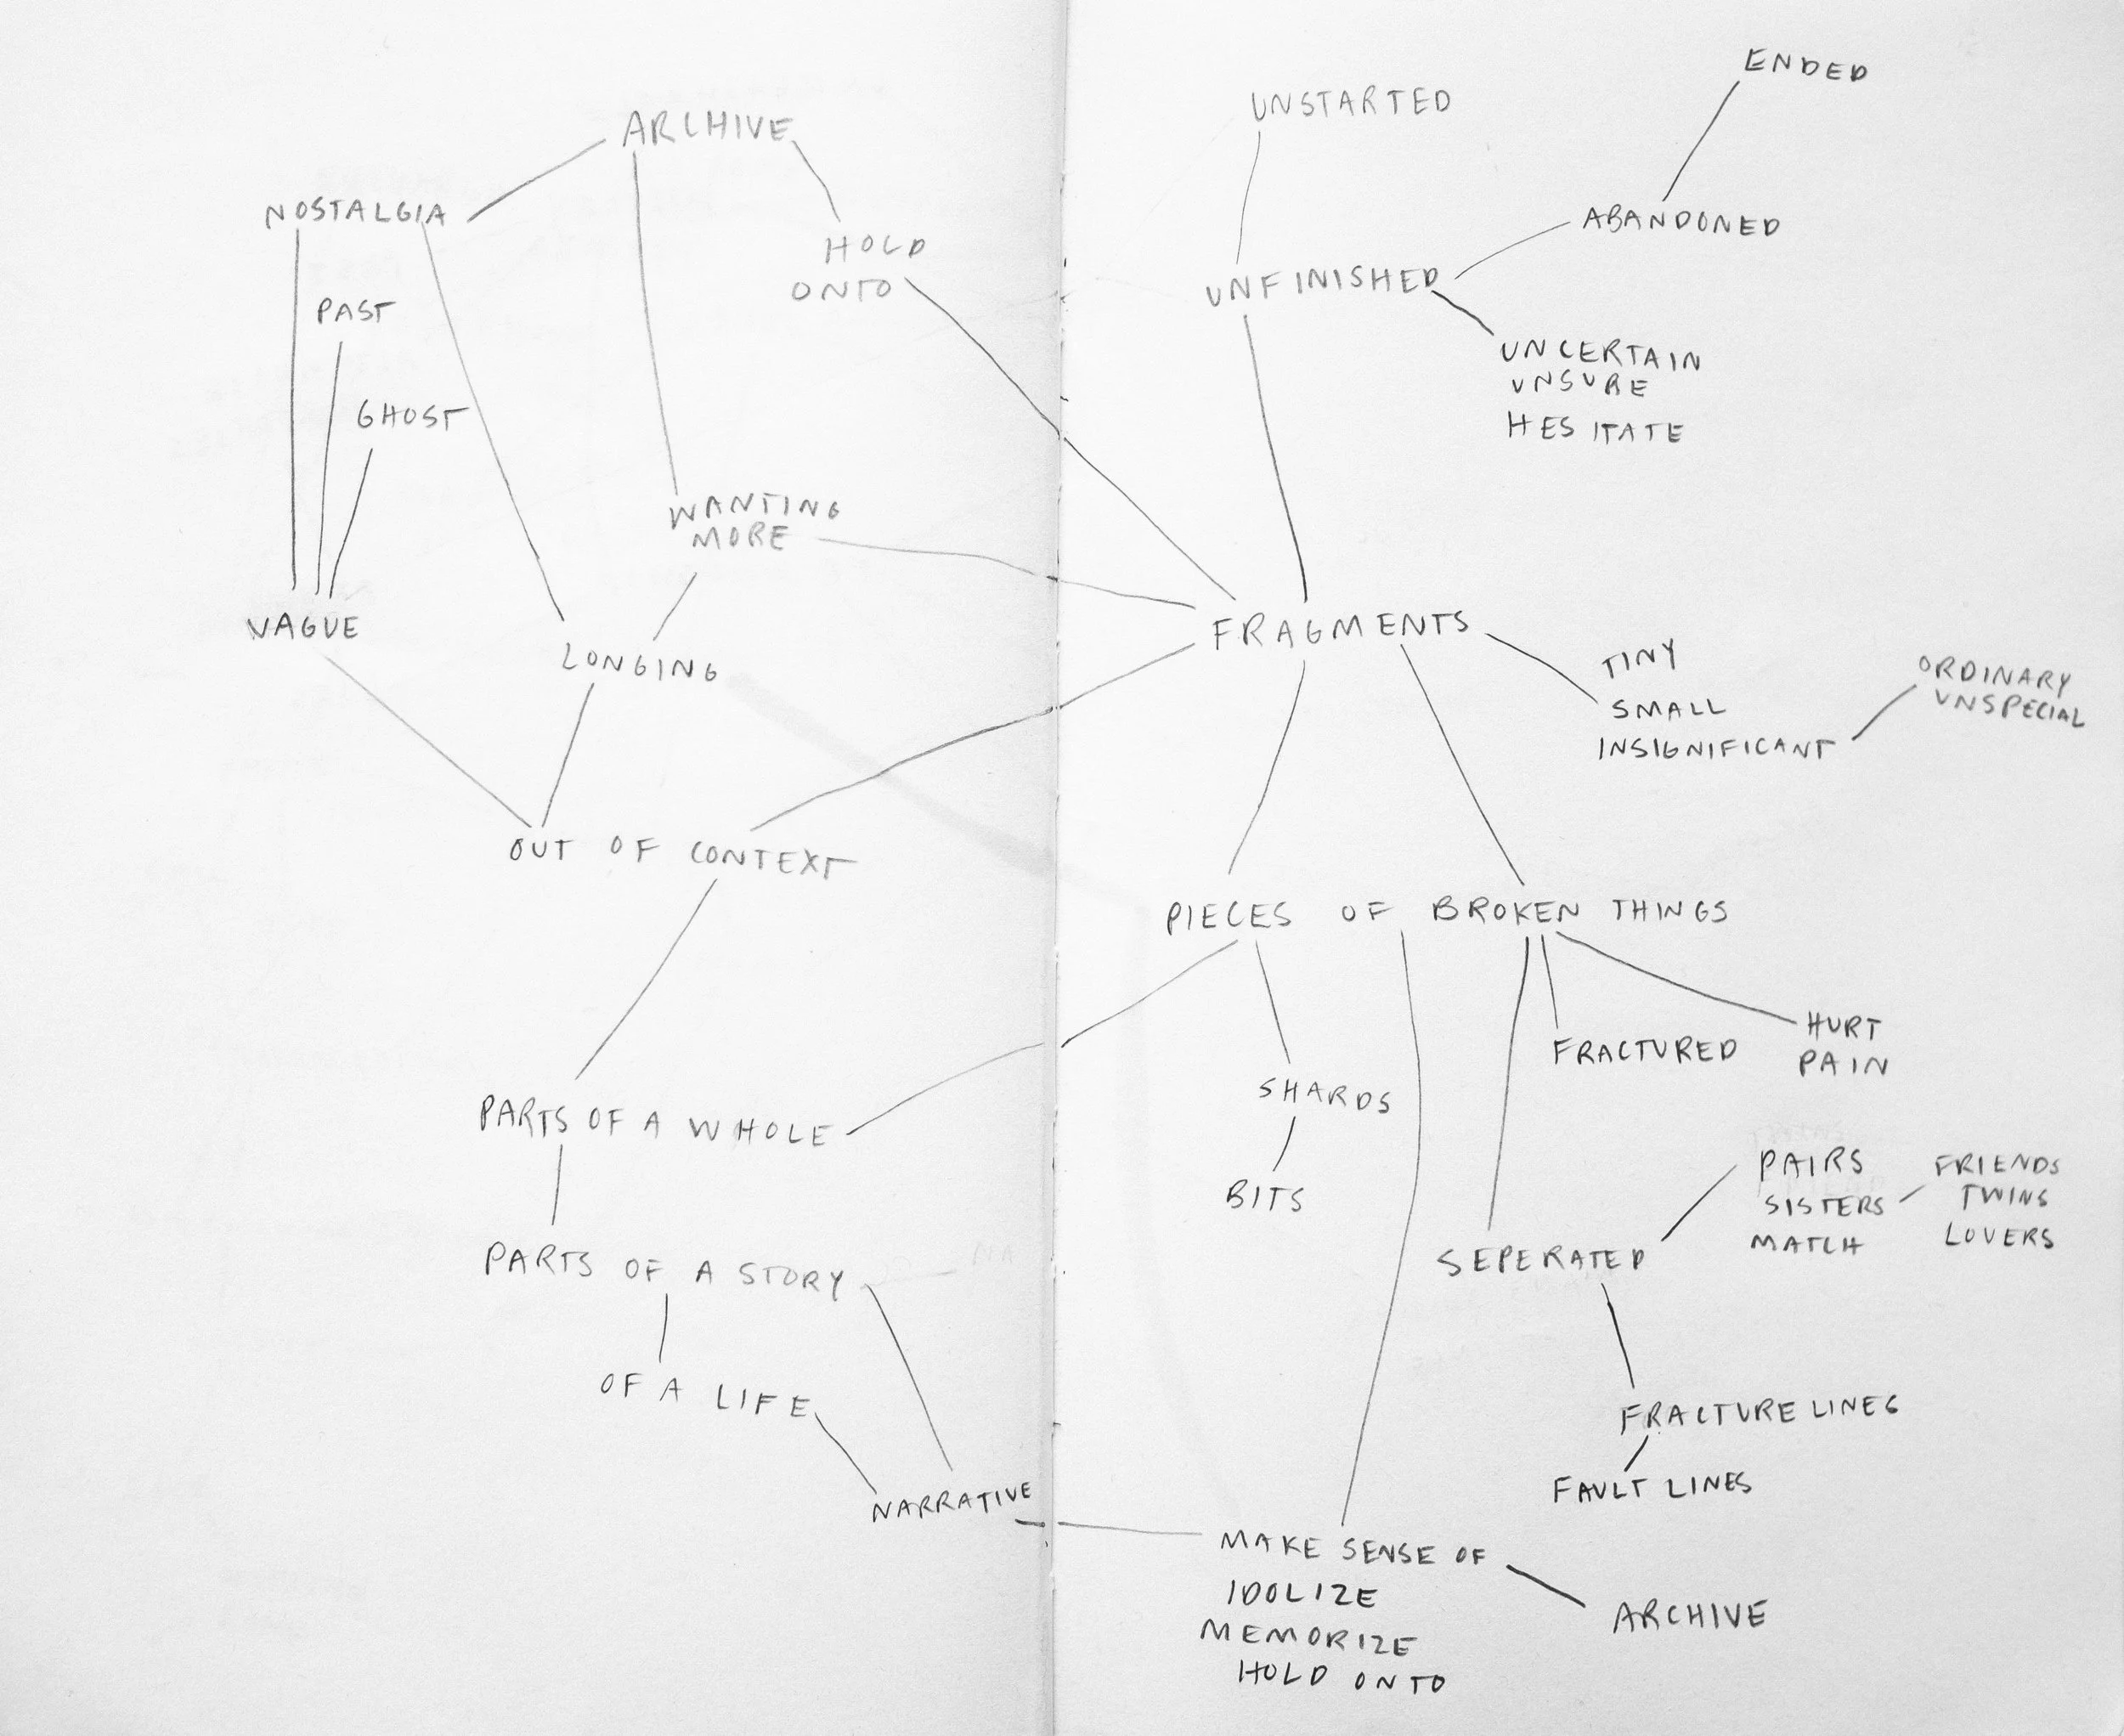 ARCHIVE
NOSTALGIA
HOLD
ONTO
PAST
GHOST
WANTING
MORE
VAGUE
LONGING
OUT OF CONTEXT
PARTS OF A WHOLE
PARTS OF A STORY
OF A LIFE
NARRATIVE
ENDED
UNSTARTED
ABANDONED
UNFINISHED
UNCERTAIN
UNSURE
HESITATE
FRAGMENTS
TINY
SMALL
INSIGNIFICANT
ORDINARY
UNSPECIAL
PIECES OF BROKEN THINGS
FRACTURED
HURT
PAIN
SHARDS
BITS
SEPERATED
PAIRS
SISTERS
MATCH
FRIENDS
TWINS
LOVERS
FRACTURE LINES
FAULT LINES
MAKE SENSE OF
IDOLIZE
MEMORIZE
HOLD ONTO
ARCHIVE